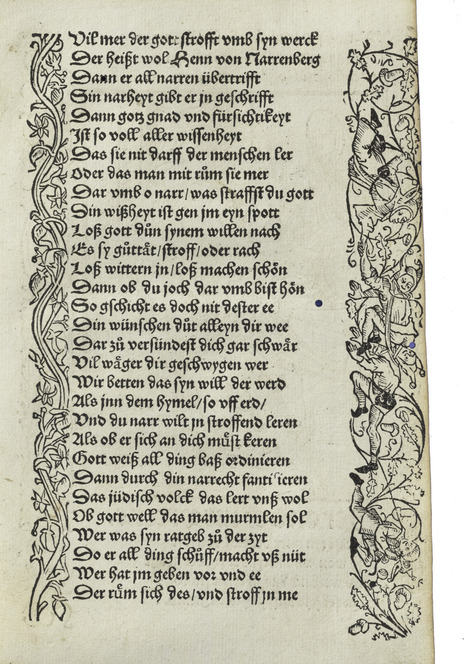 Vil mer der gott strofft vmb syn werck
Der heißt wol Henn von Narrenberg
Dann er all narren übertrifft
Sin narheyt gibt er jn geschrifft
Dann gotz gnad vnd fürsichtikeyt
Jst so voll aller wissenheyt
Das sie nit darff der menschen ler
Oder das man mit rům sie mer
Dar vmb o narr / was straffst du gott
Din wißheyt ist gen jm eyn spott
Loß gott důn synem willen nach
Es sy gůttät / stroff / oder rach
Loß wittern jn / loß machen schön
Dann ob du joch dar vmb bist hön
So gschicht es doch nit dester ee
Din wünschen důt alleyn dir wee
Dar zů versündest dich gar schwär
Vil wäger dir geschwygen wer
Wir betten das syn will der werd
Als jnn dem hymel / so vff erd /
Vnd du narr wilt jn stroffend leren
Als ob er sich an dich můst keren
Gott weiß all ding baß ordinieren
Dann durch din narrecht fantisieren
Das jüdisch volck das lert vnß wol
Ob gott well das man murmlen sol
Wer was syn ratgeb zů der zyt
Do er all ding schůff / macht vß nüt
Wer hat jm geben vor vnd ee
Der rům sich des / vnd stroff jn me